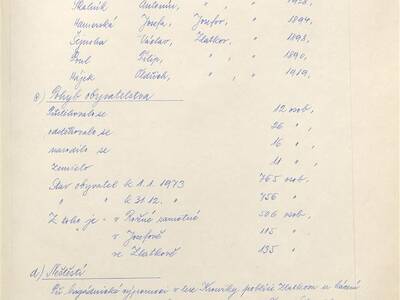 Skalník Antonín, " , " 1928,
Hamerská Josefa, Josefov, " 1894,
Václav, Zlatkov, " 1893,
Filip, " , " 1890,
Hájek Oldřich, " , " 1919,
c) Pohyb obyvatelstva
Přistěhovalo se 12 osob,
odstěhovalo se 26 " ,
narodilo se 16 " ,
zemřelo 11 " ,
Stav obyvatel k 1.1. 1973 765 osob,
" " k 31.12. " 756 "
Z toho je - v Rožné samotné 506 osob,
v Josefově 115 "
ve Zlatkově 135 "
d) Neštěstí
Při brigádnické výpomoci v lese Královky poblíže Zlatkova u kácení